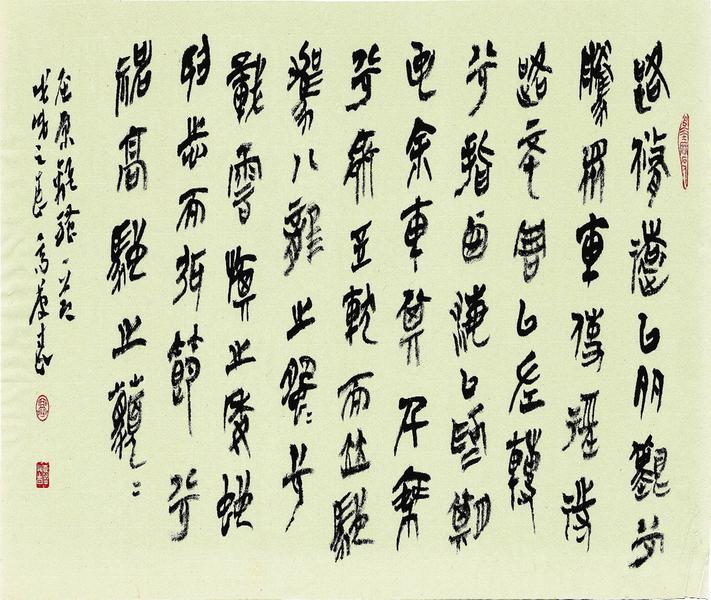 路修遠以多艱兮
騰眾車使徑待
路不周以左轉
兮指西海以為期
屯余車其千乘
兮齊玉軑而並馳
駕八龍之蜿蜿兮
載雲旗之委蛇
抑志而弭節兮
神高馳之邈邈
屈原離騷一節
戊戌之春